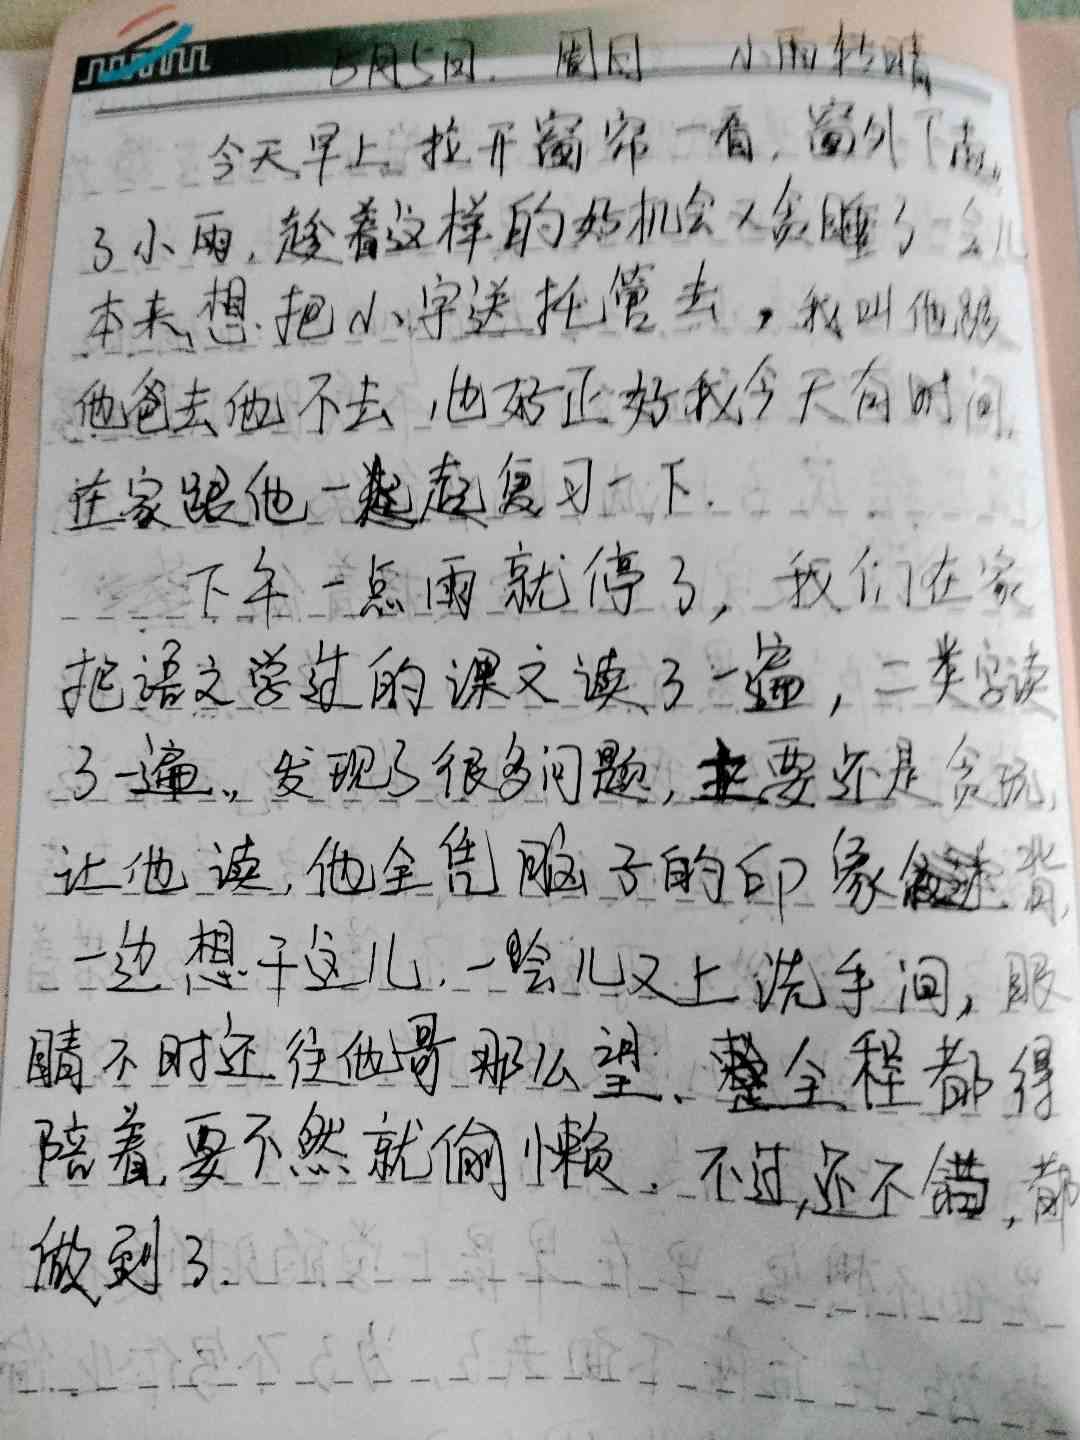 5月5日. 周日 小雨转晴
今天早上拉开窗帘一看,窗外下起
了小雨,趁着这样的好机会又贪睡了一会儿
本来想把小宇送托管去,我叫他跟
他爸去他不去,也好正好我今天有时间,
在家跟他一起复习一下.
下午一点雨就停了,我们在家
把语文学过的课文读了一遍,二类字读
了一遍,发现了很多问题,主要还是贪玩,
让他读,他全凭脑子的印象 背,
一边想干这儿.一会儿又上洗手间,眼
睛不时还往他哥那么望、全程都得
陪着,要不然就偷懒.不过,还不错,都
做到了.